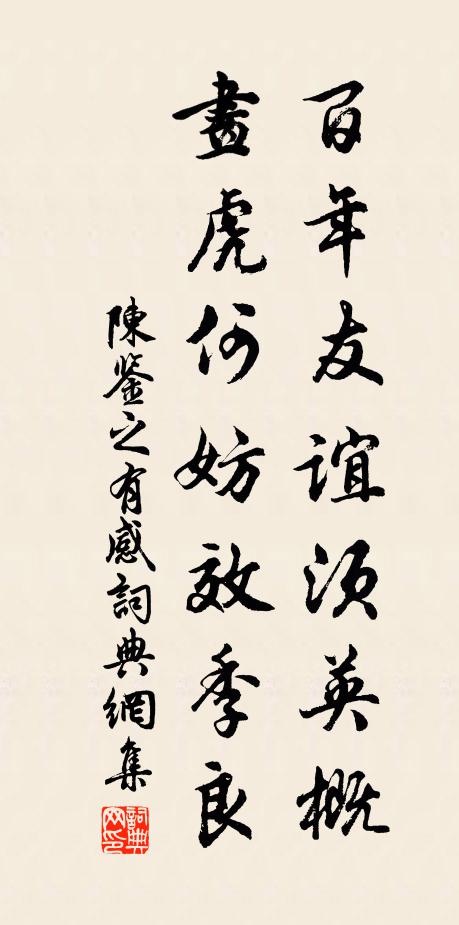 百年友誼須英概
畫虎何妨效季良
陳鉴之有感詞典網集
詞典网印